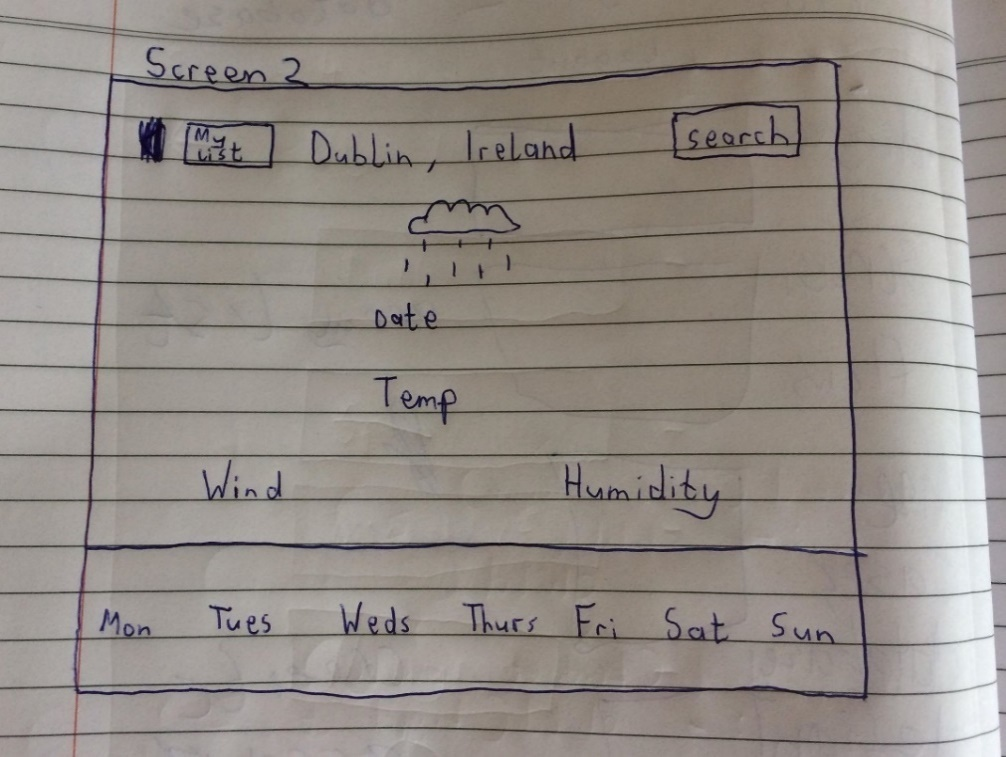 Screen 2
My List Dublin, Ireland search
Date
Temp
Wind Humidity
Mon Tues Weds Thurs Fri Sat Sun